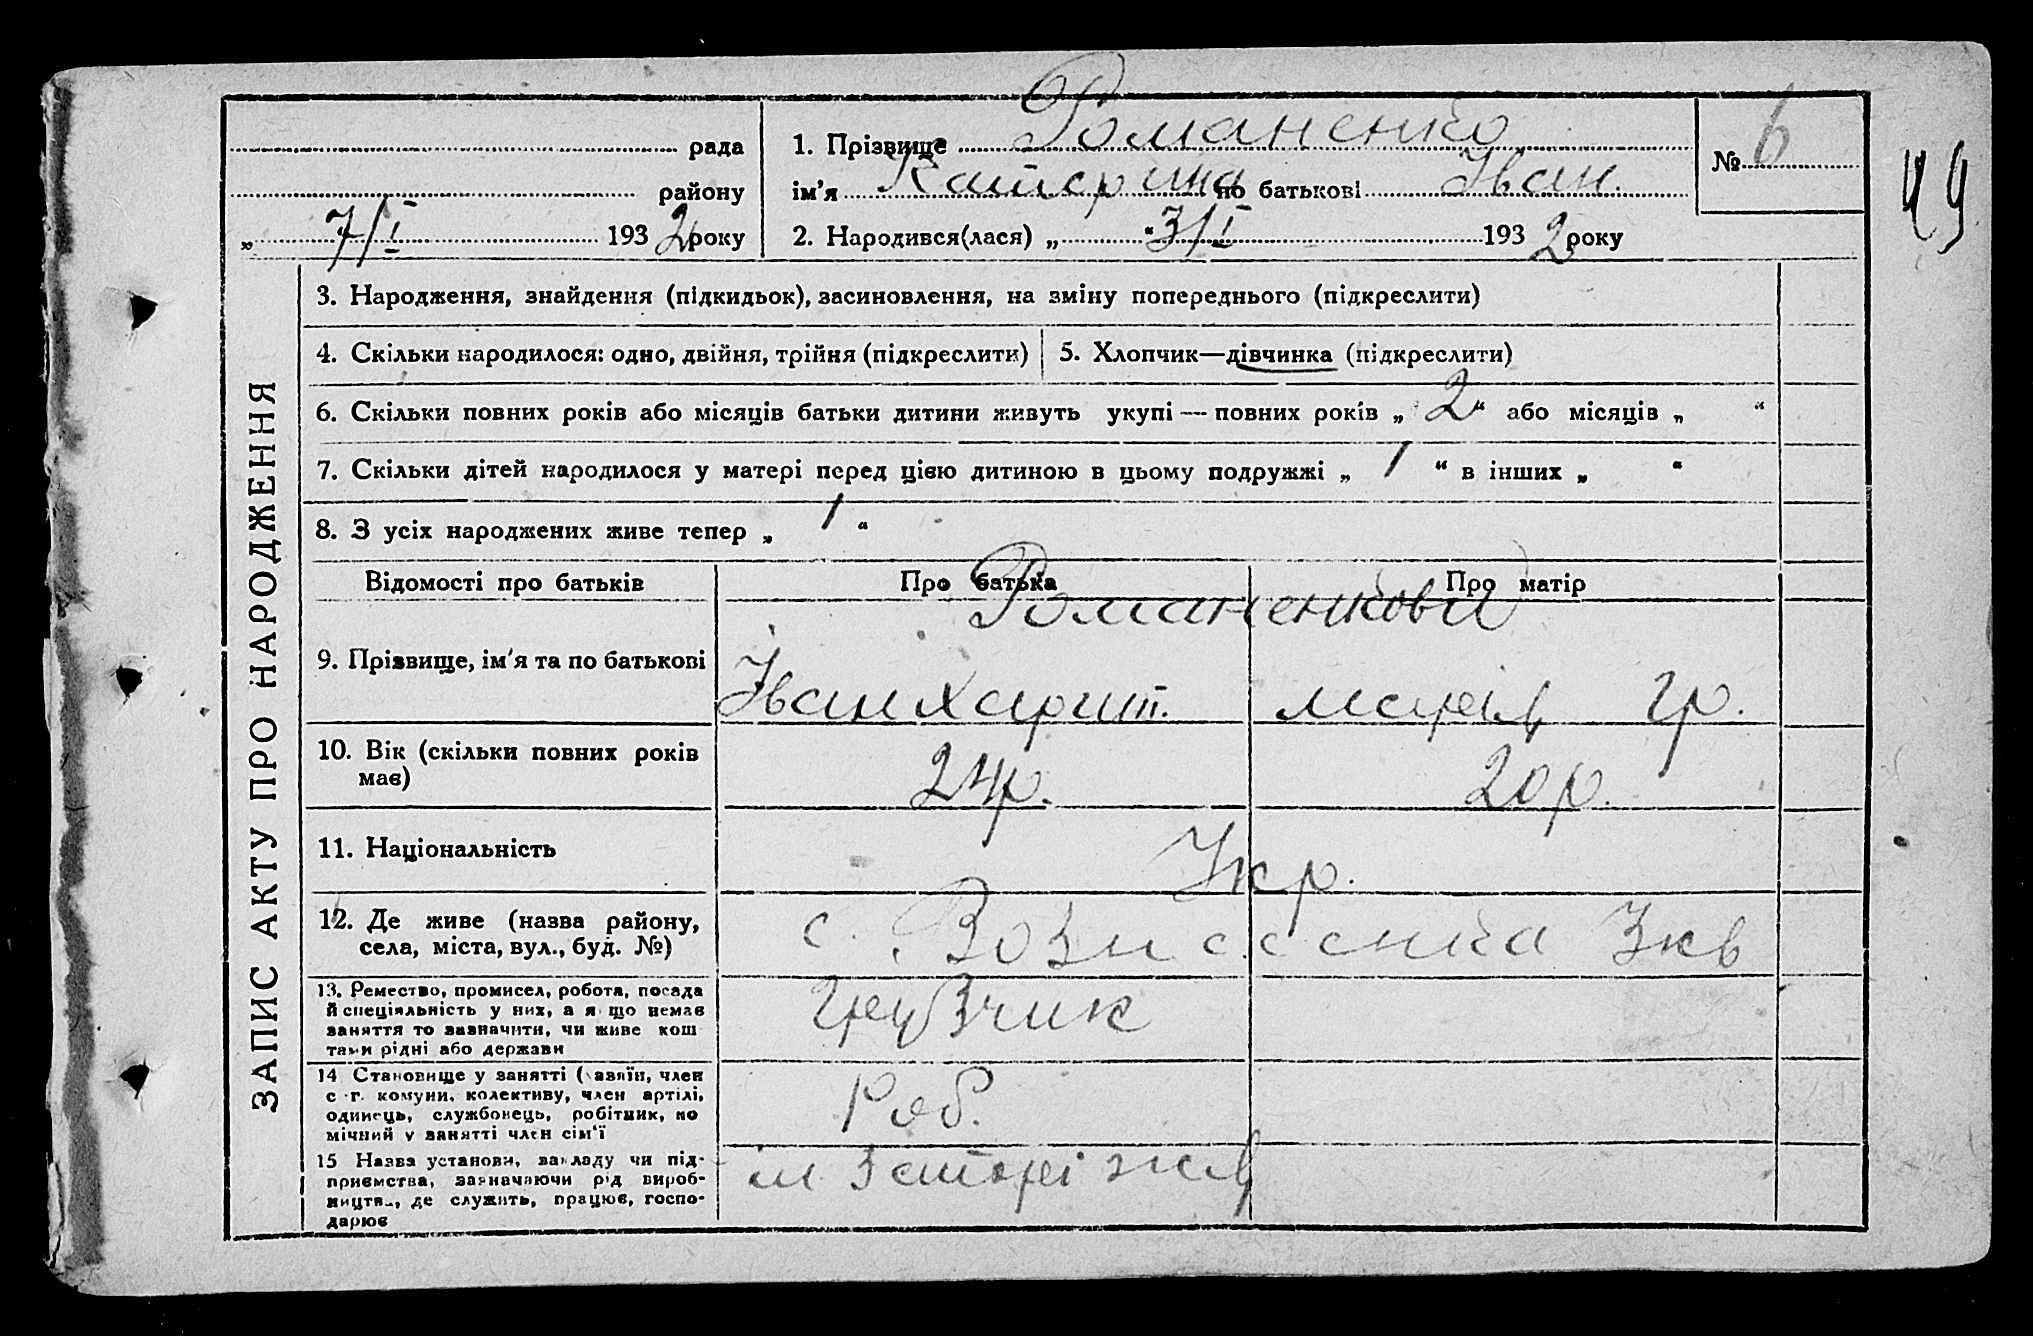 ЗАПИС АКТУ ПРО НАРОДЖЕННЯ
рада
району
„ 7/I 1932 року
1. Прізвище Романенко
ім’я Катерина по батькові Іван.
2. Народився(лася) „ 3/I 1932 року
№ 6
49
3. Народження, знайдення (підкидьок), засиновлення, на зміну попереднього (підкреслити)
4. Скільки народилося: одно, двійня, трійня (підкреслити)
5. Хлопчик—дівчинка (підкреслити)
6. Скільки повних років або місяців батьки дитини живуть укупі — повних років „ 2 “ або місяців „ “
7. Скільки дітей народилося у матері перед цією дитиною в цьому подружжі „ 1 “ в інших „ “
8. З усіх народжених живе тепер „ 1 “
Відомості про батьків Про батька Про матір
Романенкови
9. Прізвище, ім’я та по батькові Іван Харит. Марія Гр.
10. Вік (скільки повних років має) 24р. 20р.
11. Національність Укр.
12. Де живе (назва району, села, міста, вул., буд. №) с. Вознесенка
13. Ремество, промисел, робота, посада й спеціяльність у них, а якщо немає заняття то зазначити, чи живе коштами рідні або держави Грузчик
14 Становище у занятті (хазяїн, член с-г. комуни, колективу, член артілі, одинець, службонець, робітник, помічний у занятті член сім’ї Роб.
15 Назва установи, закладу чи підприємства, зазначаючи рід виробництва, де служить, працює, господарює м.